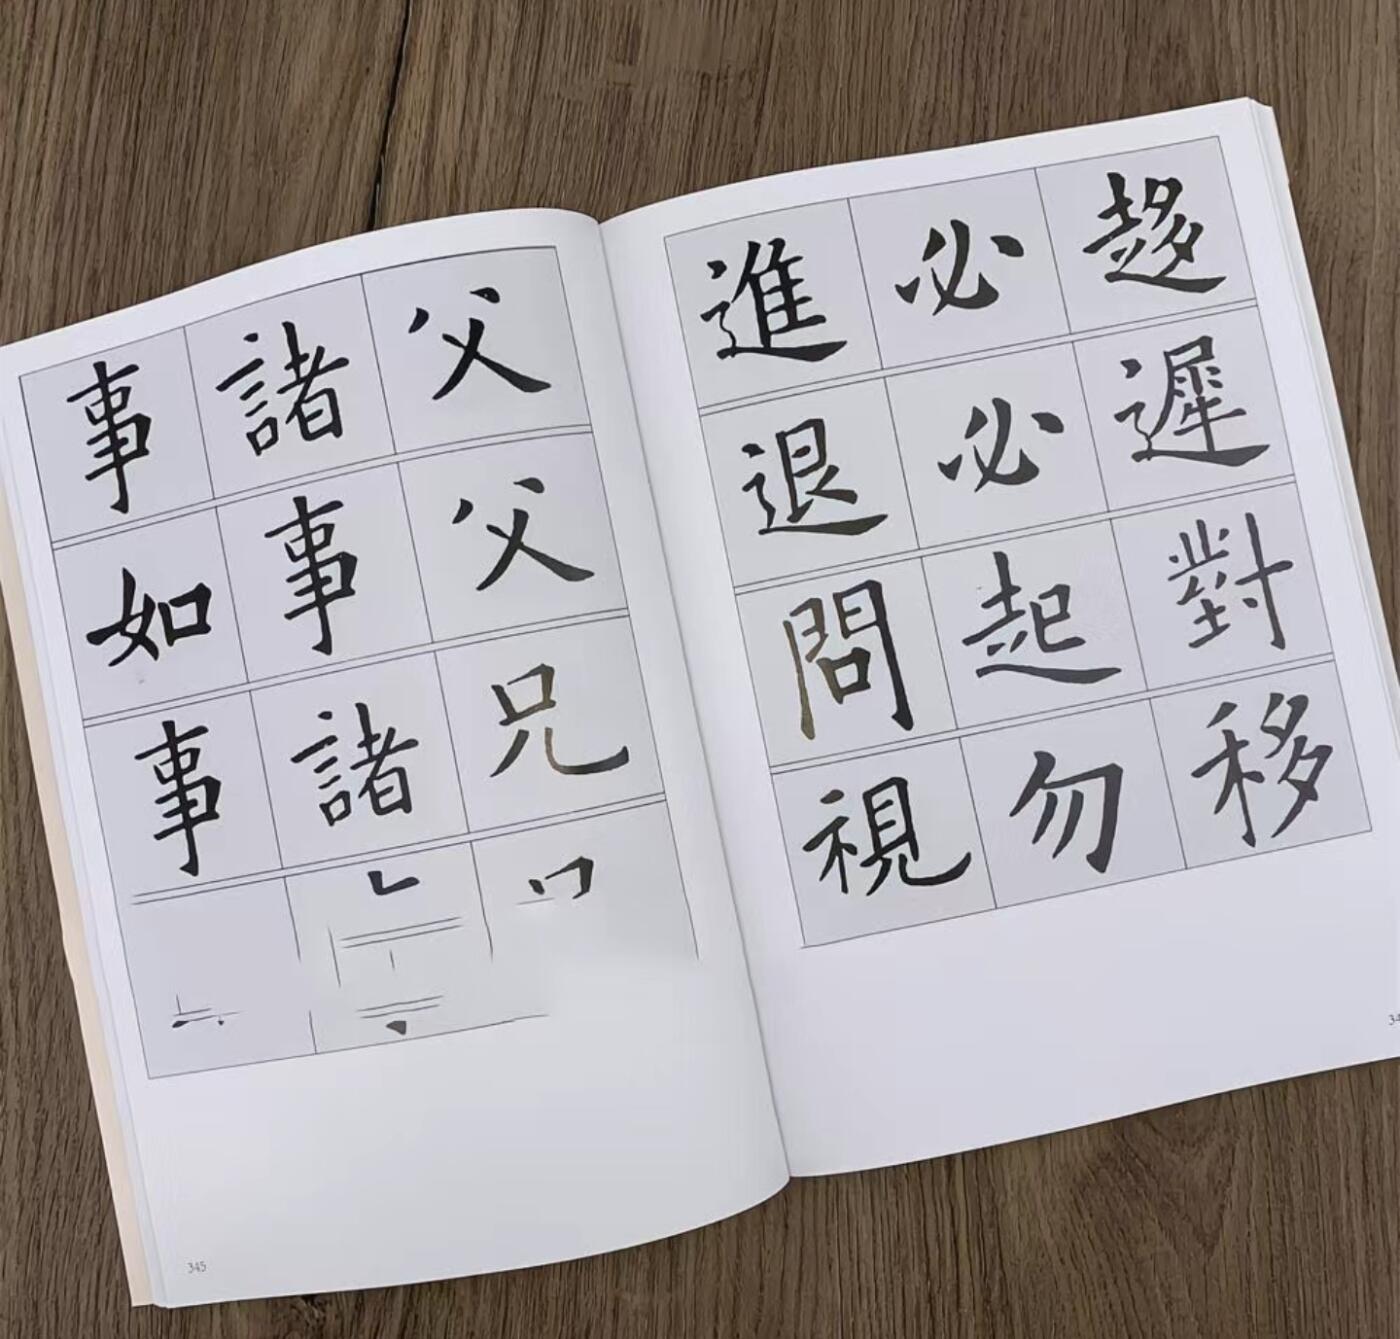 事諸父
如事父
事諸兄
345
進必趍
退必遲
問起對
視勿移